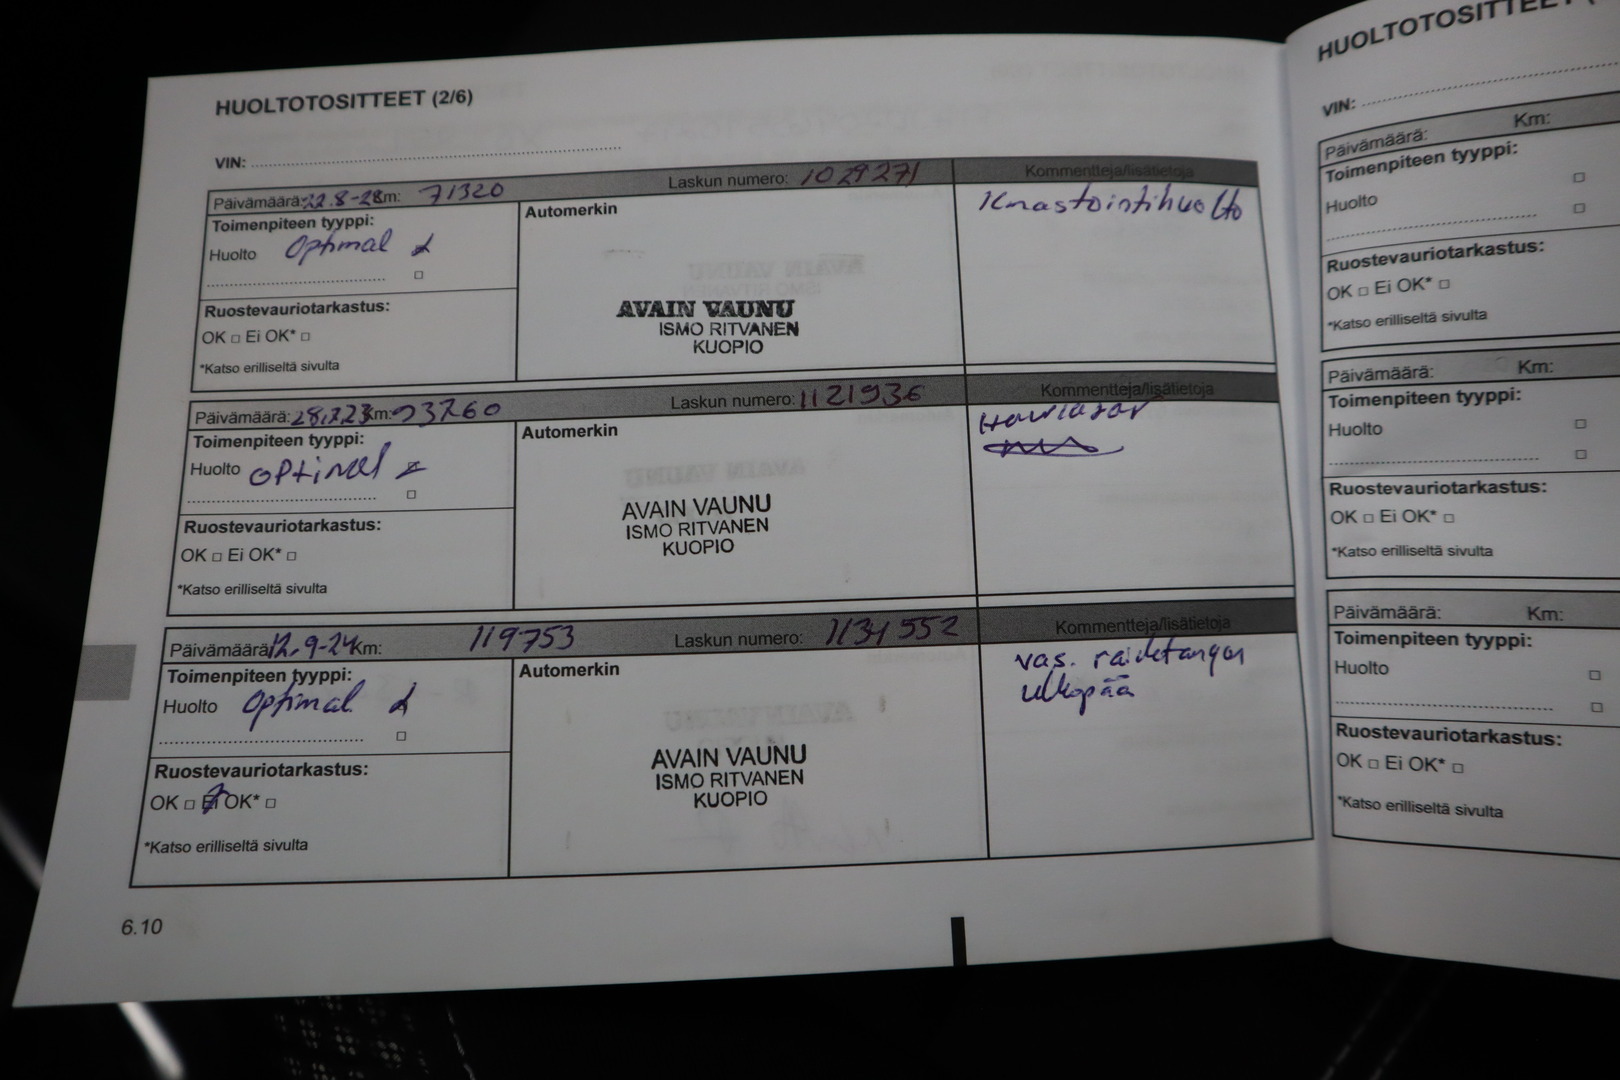 HUOLTOTOSITTEET (2/6)
VIN:
Päivämäärä: 22.8-22 Km: 71320 Laskun numero: 1029271 Kommentteja/lisätietoja
Toimenpiteen tyyppi:
Huolto Optimal
Automerkin
Ilmastointihuolto
AVAIN VAUNU
ISMO RITVANEN
KUOPIO
Ruostevauriotarkastus:
OK □ Ei OK* □
*Katso erilliseltä sivulta
Päivämäärä: 28.7.23 Km: 93760 Laskun numero: 1121936 Kommentteja/lisätietoja
Toimenpiteen tyyppi:
Huolto optimal
Automerkin
AVAIN VAUNU
ISMO RITVANEN
KUOPIO
Ruostevauriotarkastus:
OK □ Ei OK* □
*Katso erilliseltä sivulta
Päivämäärä: 12.9-24 Km: 119753 Laskun numero: 1131552 Kommentteja/lisätietoja
Toimenpiteen tyyppi:
Huolto Optimal
Automerkin
vas. raidetangon
ulkopää
AVAIN VAUNU
ISMO RITVANEN
KUOPIO
Ruostevauriotarkastus:
OK □ Ei OK* □
*Katso erilliseltä sivulta
6.10
HUOLTOTOSITTEET
VIN:
Päivämäärä: Km:
Toimenpiteen tyyppi:
Huolto □
□
Ruostevauriotarkastus:
OK □ Ei OK* □
*Katso erilliseltä sivulta
Päivämäärä: Km:
Toimenpiteen tyyppi:
Huolto □
□
Ruostevauriotarkastus:
OK □ Ei OK* □
*Katso erilliseltä sivulta
Päivämäärä: Km:
Toimenpiteen tyyppi:
Huolto □
□
Ruostevauriotarkastus:
OK □ Ei OK* □
*Katso erilliseltä sivulta